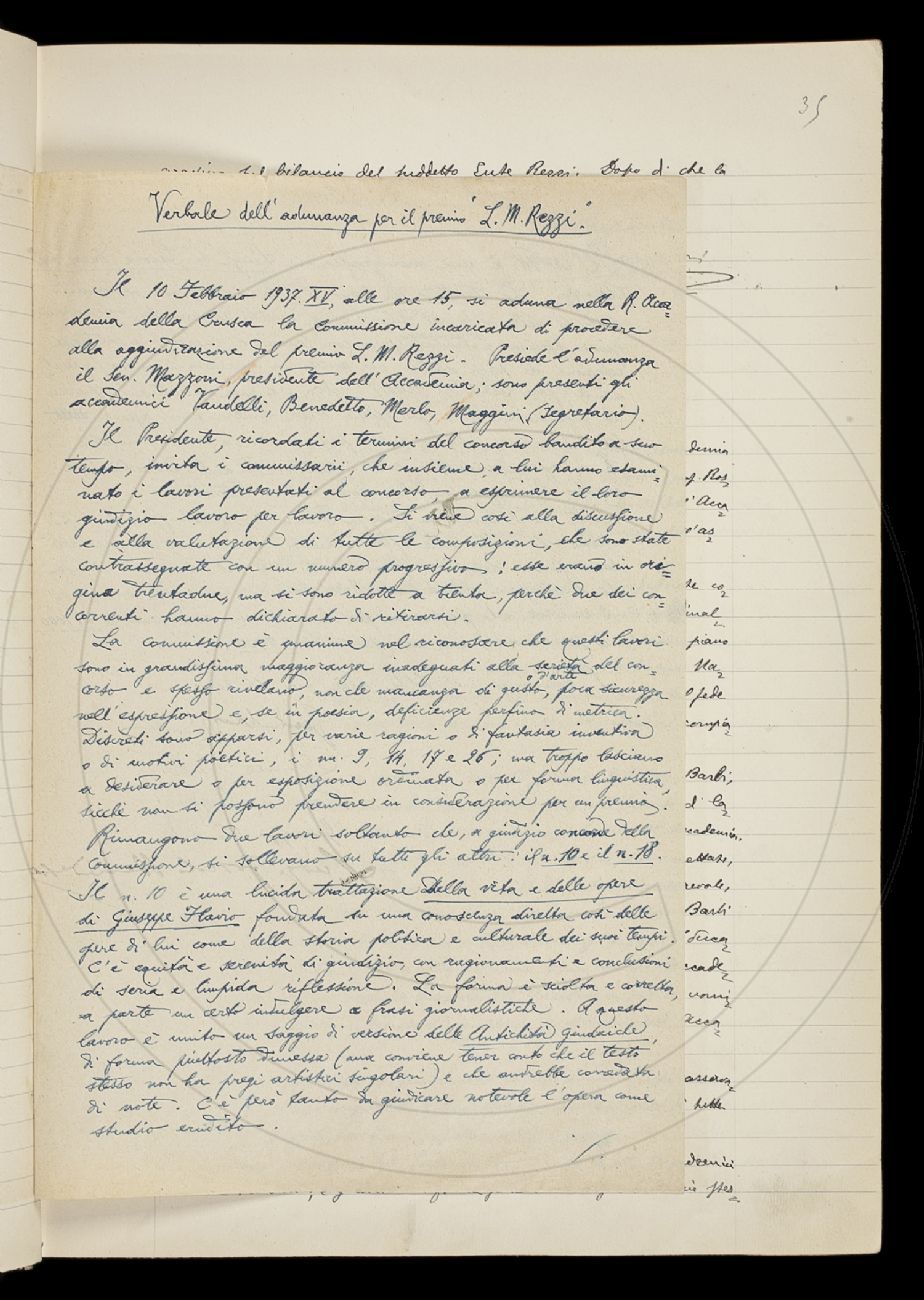 35
del bilancio del suddetto Ente Rezzi. Dopo di che la
Verbale dell'adunanza per il premio "L. M. Rezzi".
Il 10 Febbraio 1937.XV, alle ore 15, si aduna nella R. Acca=
demia della Crusca la Commissione incaricata di procedere
alla aggiudicazione del premio L. M. Rezzi. Presiede l'adunanza
il Sen. Mazzoni, presidente dell'Accademia; sono presenti gli
accademici Vandelli, Benedetto, Merlo, Maggini (segretario).
Il Presidente, ricordati i termini del concorso bandito a suo
tempo, invita i commissarii, che insieme a lui hanno esami=
nato i lavori presentati al concorso, a esprimere il loro
giudizio lavoro per lavoro. Si viene così alla discussione
e alla valutazione di tutte le composizioni, che sono state
contrassegnate con un numero progressivo; esse erano in ori=
gine trentadue, ma si sono ridotte a trenta, perchè due dei con=
correnti hanno dichiarato di ritirarsi.
La commissione è unanime nel riconoscere che questi lavori
sono in grandissima maggioranza inadeguati alla serietà del con=
corso e spesso rivelano, non che mancanza di gusto o d'arte, poca sicurezza
nell'espressione e, se in poesia, deficienze perfino di metrica.
Discreti sono apparsi, per varie ragioni o di fantasia inventiva
o di motivi poetici, i nn. 9, 14, 17 e 26; ma troppo lasciano
a desiderare o per esposizione ordinata o per forma linguistica,
sicchè non si possono prendere in considerazione per un premio.
Rimangono due lavori soltanto che, a giudizio concorde della
Commissione, si sollevano su tutti gli altri: il n. 10 e il n. 18.
Il n. 10 è una lucida trattazione della vita e delle opere
di Giuseppe Flavio fondata su una conoscenza diretta così delle
opere di lui come della storia politica e culturale dei suoi tempi.
C'è equità e serenità di giudizio, con ragionamenti e conclusioni
di seria e limpida riflessione. La forma è sciolta e corretta,
a parte un certo indulgere a frasi giornalistiche. A questo
lavoro è unito un saggio di versione delle Antichità giudaiche,
di forma piuttosto dimessa (ma conviene tener conto che il testo
stesso non ha pregi artistici singolari) e che andrebbe corredata
di note. C'è però tanto da giudicare notevole l'opera come
studio erudito.